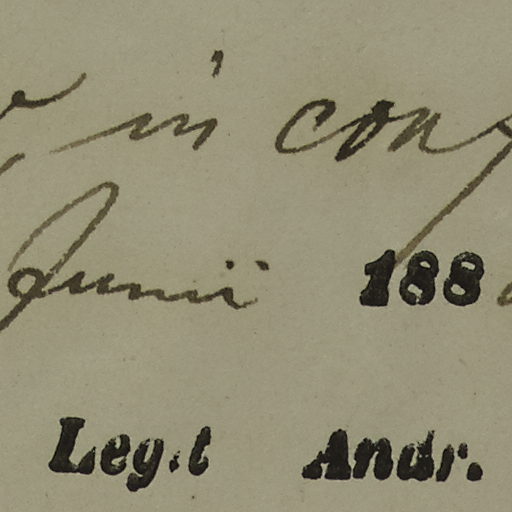 in con
Junii 188
Leg.t Andr.